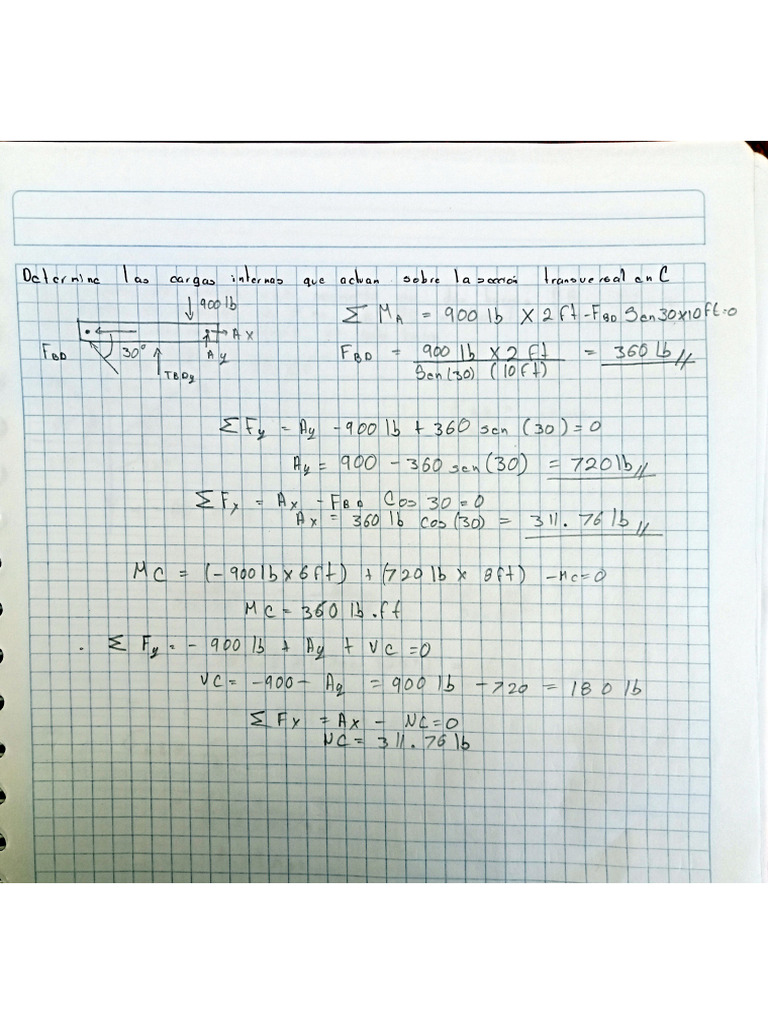 Determine las cargas internas que actuan sobre la sección transversal en C
900 lb
Ax
FBD 30° Ay
TBDy
Σ MA = 900 lb x 2 ft - FBD Sen 30 x 10 ft = 0
FBD = 900 lb x 2 ft / Sen (30) (10 ft) = 360 lb //
Σ Fy = Ay - 900 lb + 360 sen (30) = 0
Ay = 900 - 360 sen (30) = 720 lb //
Σ Fx = Ax - FBD Cos 30 = 0
Ax = 360 lb cos (30) = 311.76 lb //
MC = (-900 lb x 6 ft) + (720 lb x 8 ft) - Mc = 0
MC = 360 lb.ft
. Σ Fy = - 900 lb + Ay + VC = 0
VC = -900 - Ay = 900 lb - 720 = 180 lb
Σ Fx = Ax - NC = 0
NC = 311.76 lb